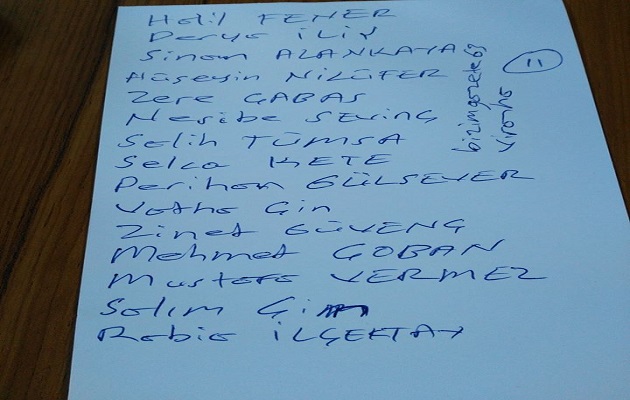 Halil FENER
Derya İLİŞ
Sinan ALANKAYA
Hüseyin NİLÜFER
Zere GABAŞ
Nesibe SEVİNÇ
Salih TÜMSA
Selca KETE
Perihan GÜLSEVER
Vatha Çin
Zinet GÜVENÇ
Mehmet ÇOBAN
Mustafa VERMEZ
Salim Çin
Rabia İLÇEKTAY
bizimgazete63
11